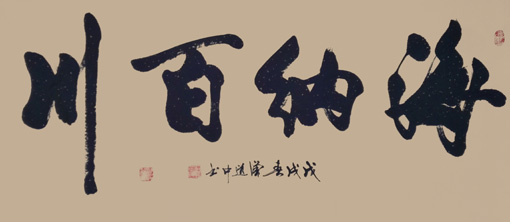 海纳百川
戊戌春